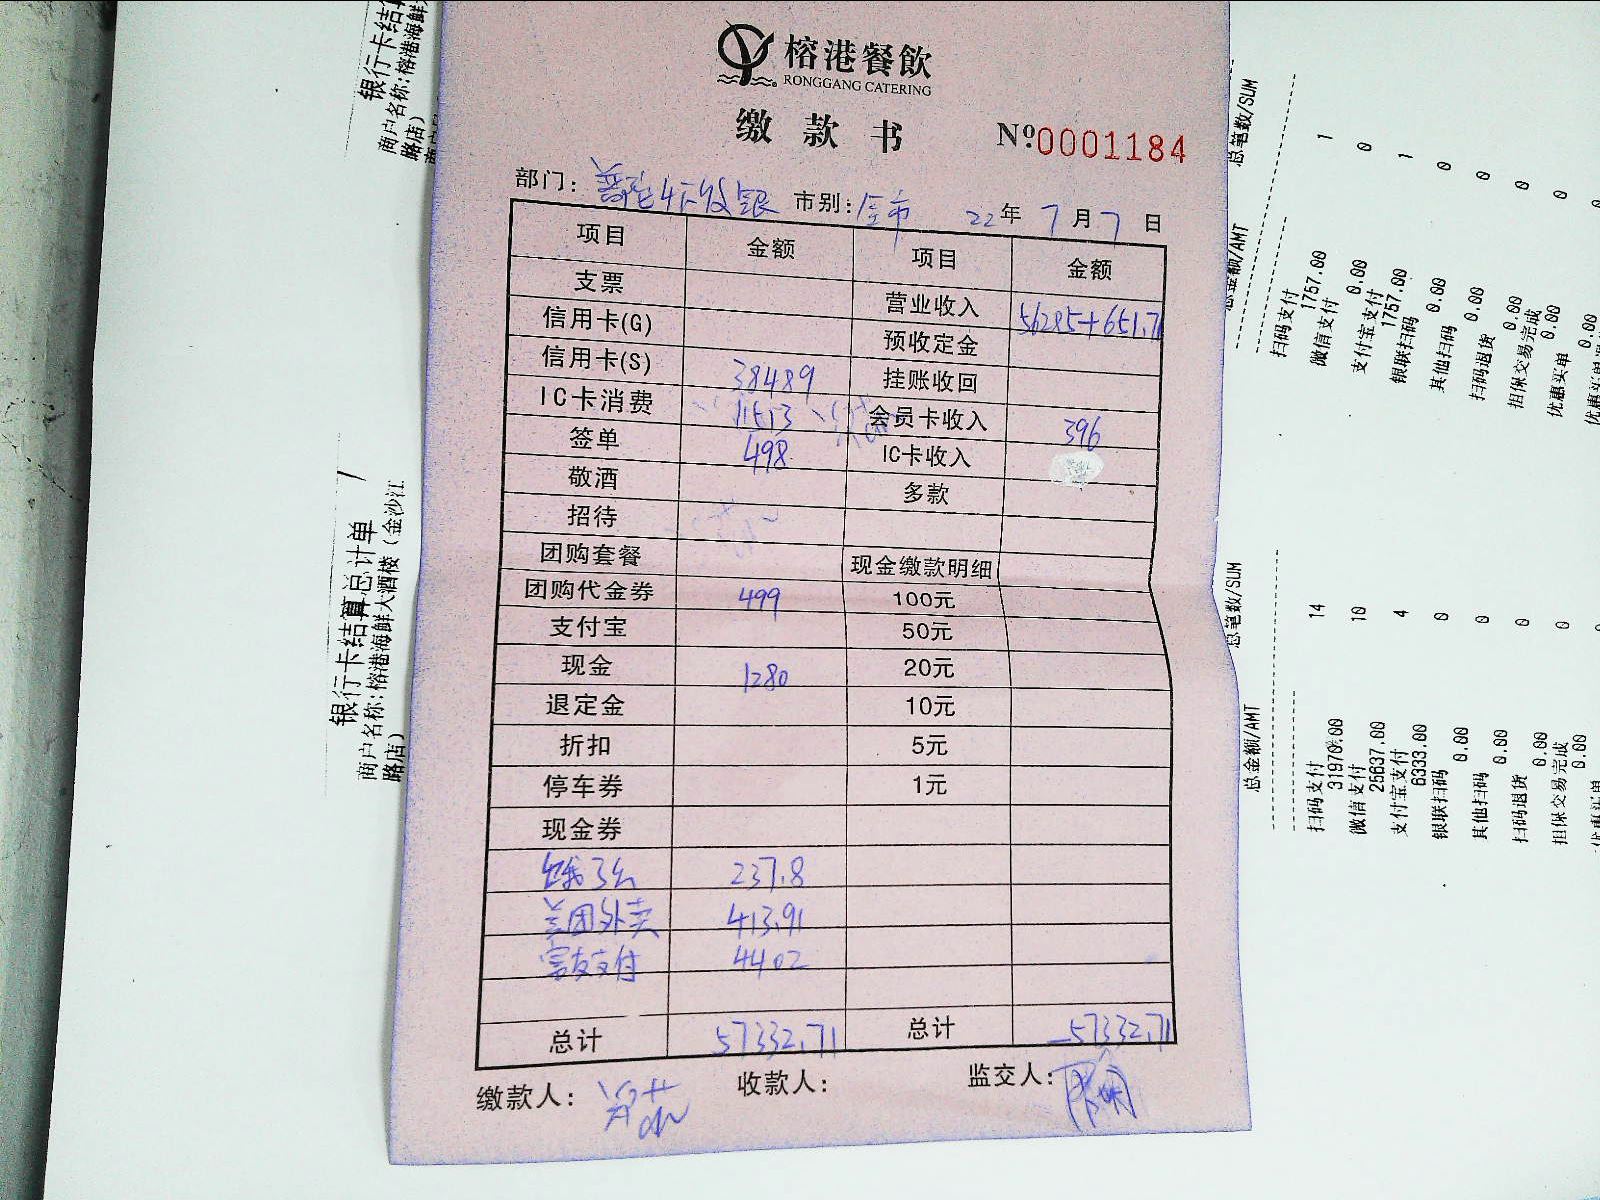 榕港餐飲
RONGGANG CATERING
缴款书
Nº0001184
部门: 市别:全市 22年7月7日
项目 金额 项目 金额
支票 营业收入 56285+651.71
信用卡(G) 预收定金
信用卡(S) 38489 挂账收回
IC卡消费 11513 会员卡收入 396
签单 498 IC卡收入
敬酒 多款
招待
团购套餐 现金缴款明细
团购代金券 499 100元
支付宝 50元
现金 1280 20元
退定金 10元
折扣 5元
停车券 1元
现金券
饿了么 237.8
美团外卖 413.91
富友支付 4402
总计 57332.71 总计 57332.71
缴款人: 收款人: 监交人:
银行卡结算总计单
商户名称:榕港海鲜大酒楼(金沙江
路店)
银行卡结算
商户名称:榕港海鲜
路店)
总金额/AMT 总笔数/SUM
扫码支付 1
1757.00
微信支付 0
0.00
支付宝支付 1
1757.00
银联扫码 0
0.00
其他扫码 0
0.00
扫码退货 0
0.00
担保交易完成 0
0.00
优惠买单
0.00
总金额/AMT 总笔数/SUM
扫码支付 14
31970.00
微信支付 10
25637.00
支付宝支付 4
6333.00
银联扫码 0
0.00
其他扫码 0
0.00
扫码退货 0
0.00
担保交易完成 0
0.00